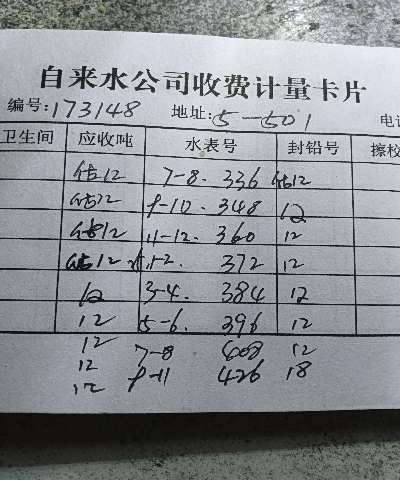 自来水公司收费计量卡片
编号:173148 地址:5-501 电话
卫生间 应收吨 水表号 封铅号 擦校
估12 7-8. 336 估12
估12 9-10. 348 12
估12 11-12. 360 12
估12 1-2. 372 12
12 3-4. 384 12
12 5-6. 396 12
12 7-8 408 12
12 9-11 426 18
12